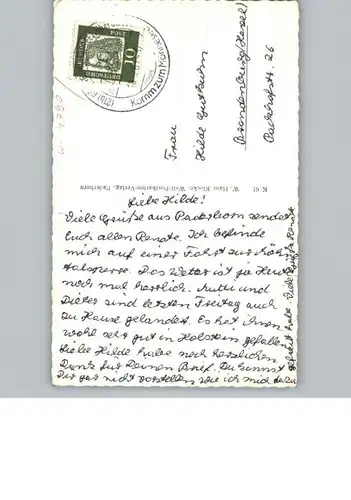 Liebe Hilde!
Viele Grüße aus Paderborn sendet
Euch allen Renate. Ich befinde
mich auf einer Fahrt zur
Talsperre. Das Wetter ist ja heute
noch mal herrlich. Mutti und
Dieter sind letzten Freitag auch
zu Hause gelandet. Es hat ihnen
wohl sehr gut in Holstein gefallen.
Liebe Hilde habe noch herzlichen
Dank für Deinen Brief. Du kannst
Dir gar nicht vorstellen wie ich mich dazu
gefreut habe. Viele Grüße Renate
K 61 W. Hans Klocke, Welt-Postkarten-Verlag, Paderborn
Frau
Hilde
Brandenburg (Havel)
Packhofstr. 26
DEUTSCHE
BUNDESPOST
10
Komm zum
W-4790